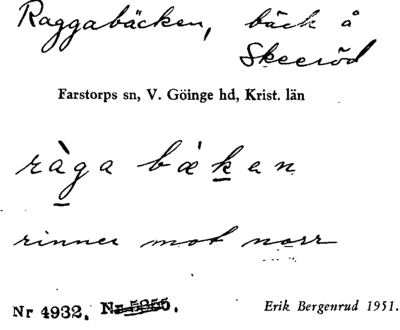 Raggabäcken, bäck å
Skeeröd
Farstorps sn, V. Göinge hd, Krist. län
ràga bǽken
rinner mot norr
Nr 4932. Nr 5255.
Erik Bergenrud 1951.